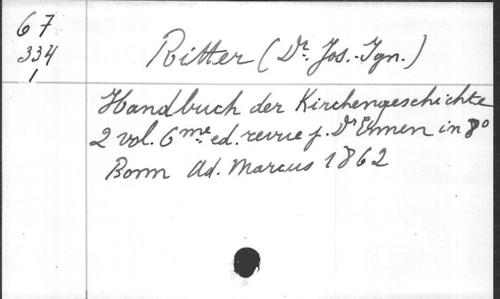 67
334
1
Ritter (Dr. Jos.-Ign.)
Handbuch der Kirchengeschichte
2 vol. 6me. ed. revue p. Dr Ennen in 8º
Bonn Ad. Marcus 1862